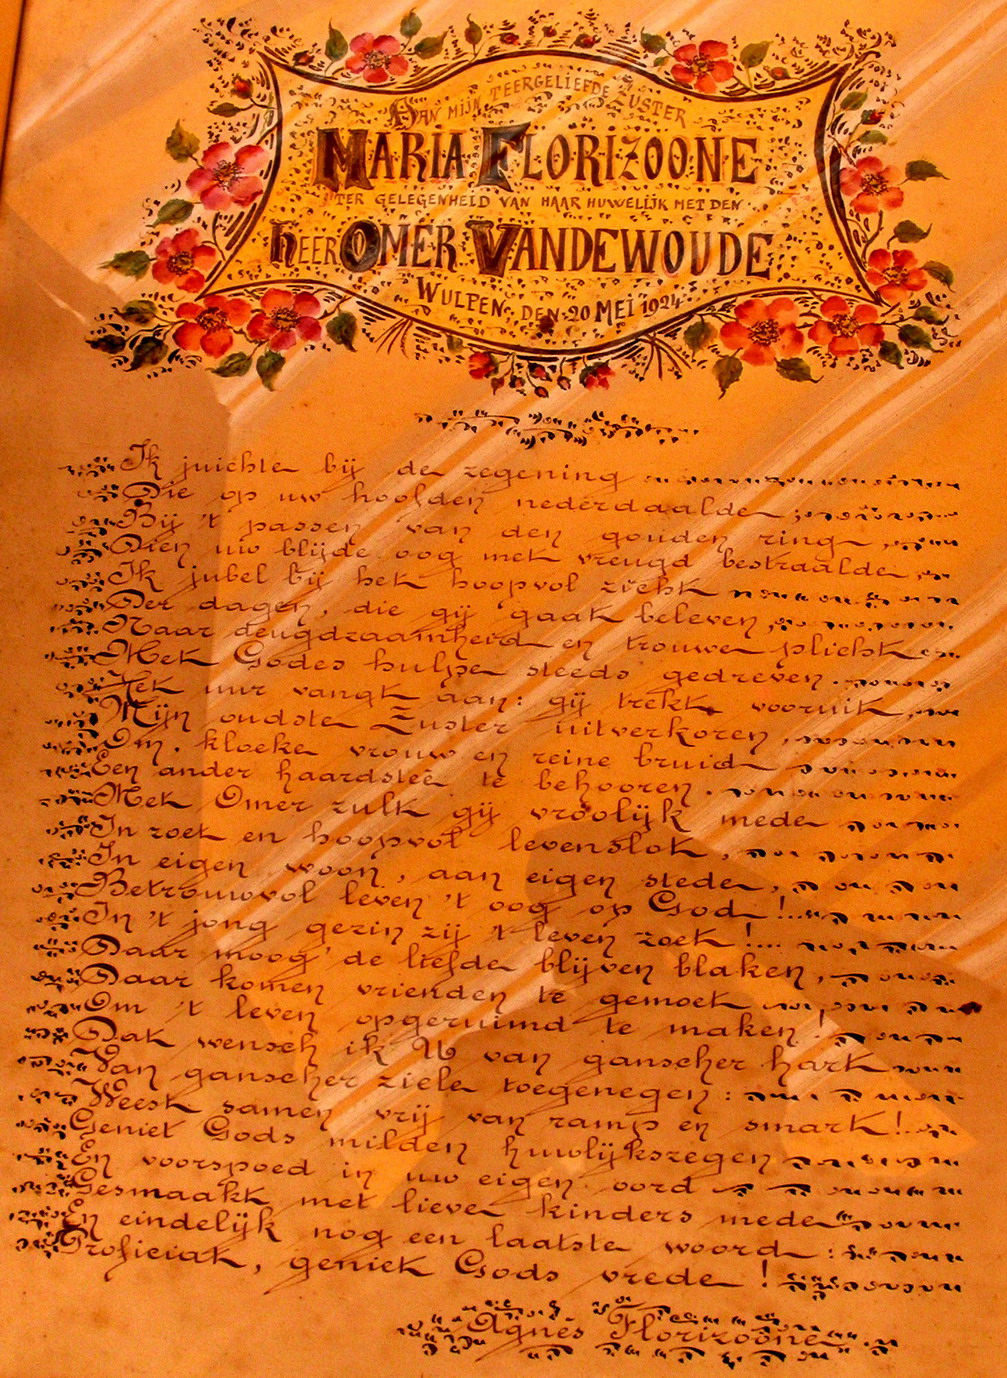 Aan mijn teergeliefde Zuster
Maria Florizoone
ter gelegenheid van haar huwelijk met den
Heer Omer Vandewoude
Wulpen, den 20 Mei 1924
Ik juichte bij de zegening
Die op uw hoofden nederdaalde;
Bij 't passen van den gouden ring,
Dien uw blijde oog met vreugd bestraalde,
Ik jubel bij het hoopvol zicht
Der dagen, die gij gaat beleven,
Naar deugdzaamheid en trouwe plicht
Met Godes hulpe steeds gedreven.
Het uur vangt aan: gij trekt vooruit,
Mijn oudste Zuster uitverkoren,
Om, kloeke vrouw en reine bruid
Een ander haardsteê te behooren.
Met Omer zult gij vroolijk mede
In zoet en hoopvol levenslot,
In eigen woon, aan eigen stede,
Betrouwvol leven 't oog op God!
In 't jong gezin zij 't leven zoet!
Daar moog' de liefde blijven blaken,
Daar komen vrienden te gemoet
Om 't leven opgeruimd te maken!
Dat wensch ik U van ganscher hart
Van ganscher ziele toegenegen:
Weest samen vrij van ramp en smart!
Geniet Gods milden huwlijkszegen
En voorspoed in uw eigen oord
Gesmaakt met lieve kinders mede
En eindelijk nog een laatste woord:
Proficiat, geniet Gods vrede!
Agnès Florizoone